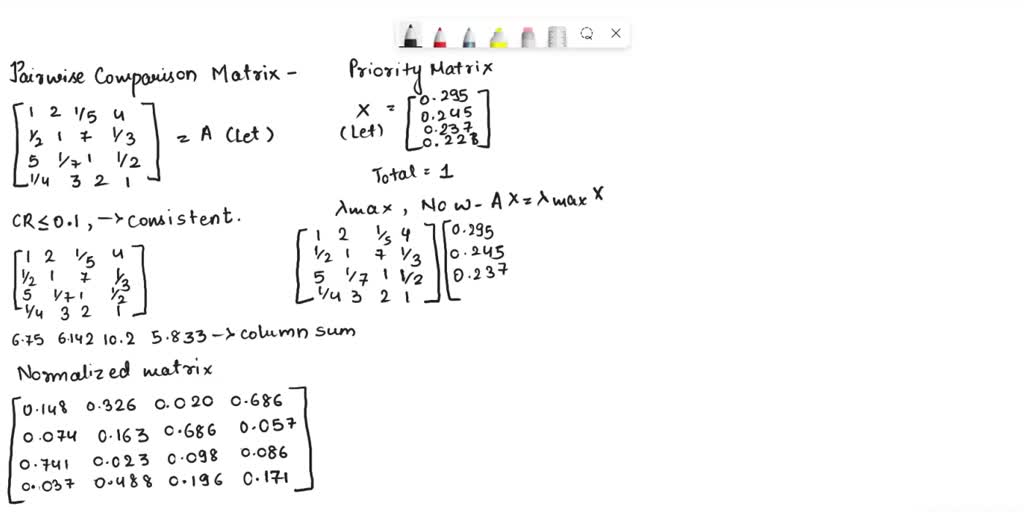 Pairwise Comparison Matrix -
1 2 1/5 4
1/2 1 7 1/3
5 1/7 1 1/2
1/4 3 2 1
= A (Let)
CR ≤ 0.1, → Consistent.
1 2 1/5 4
1/2 1 7 1/3
5 1/7 1 1/2
1/4 3 2 1
6.75 6.142 10.2 5.833 → column sum
Normalized matrix
0.148 0.326 0.020 0.686
0.074 0.163 0.686 0.057
0.741 0.023 0.098 0.086
0.037 0.488 0.196 0.171
Priority Matrix
X =
(Let)
0.295
0.245
0.237
0.223
Total = 1
λmax, Now - AX = λmax X
1 2 1/5 4
1/2 1 7 1/3
5 1/7 1 1/2
1/4 3 2 1
0.295
0.245
0.237